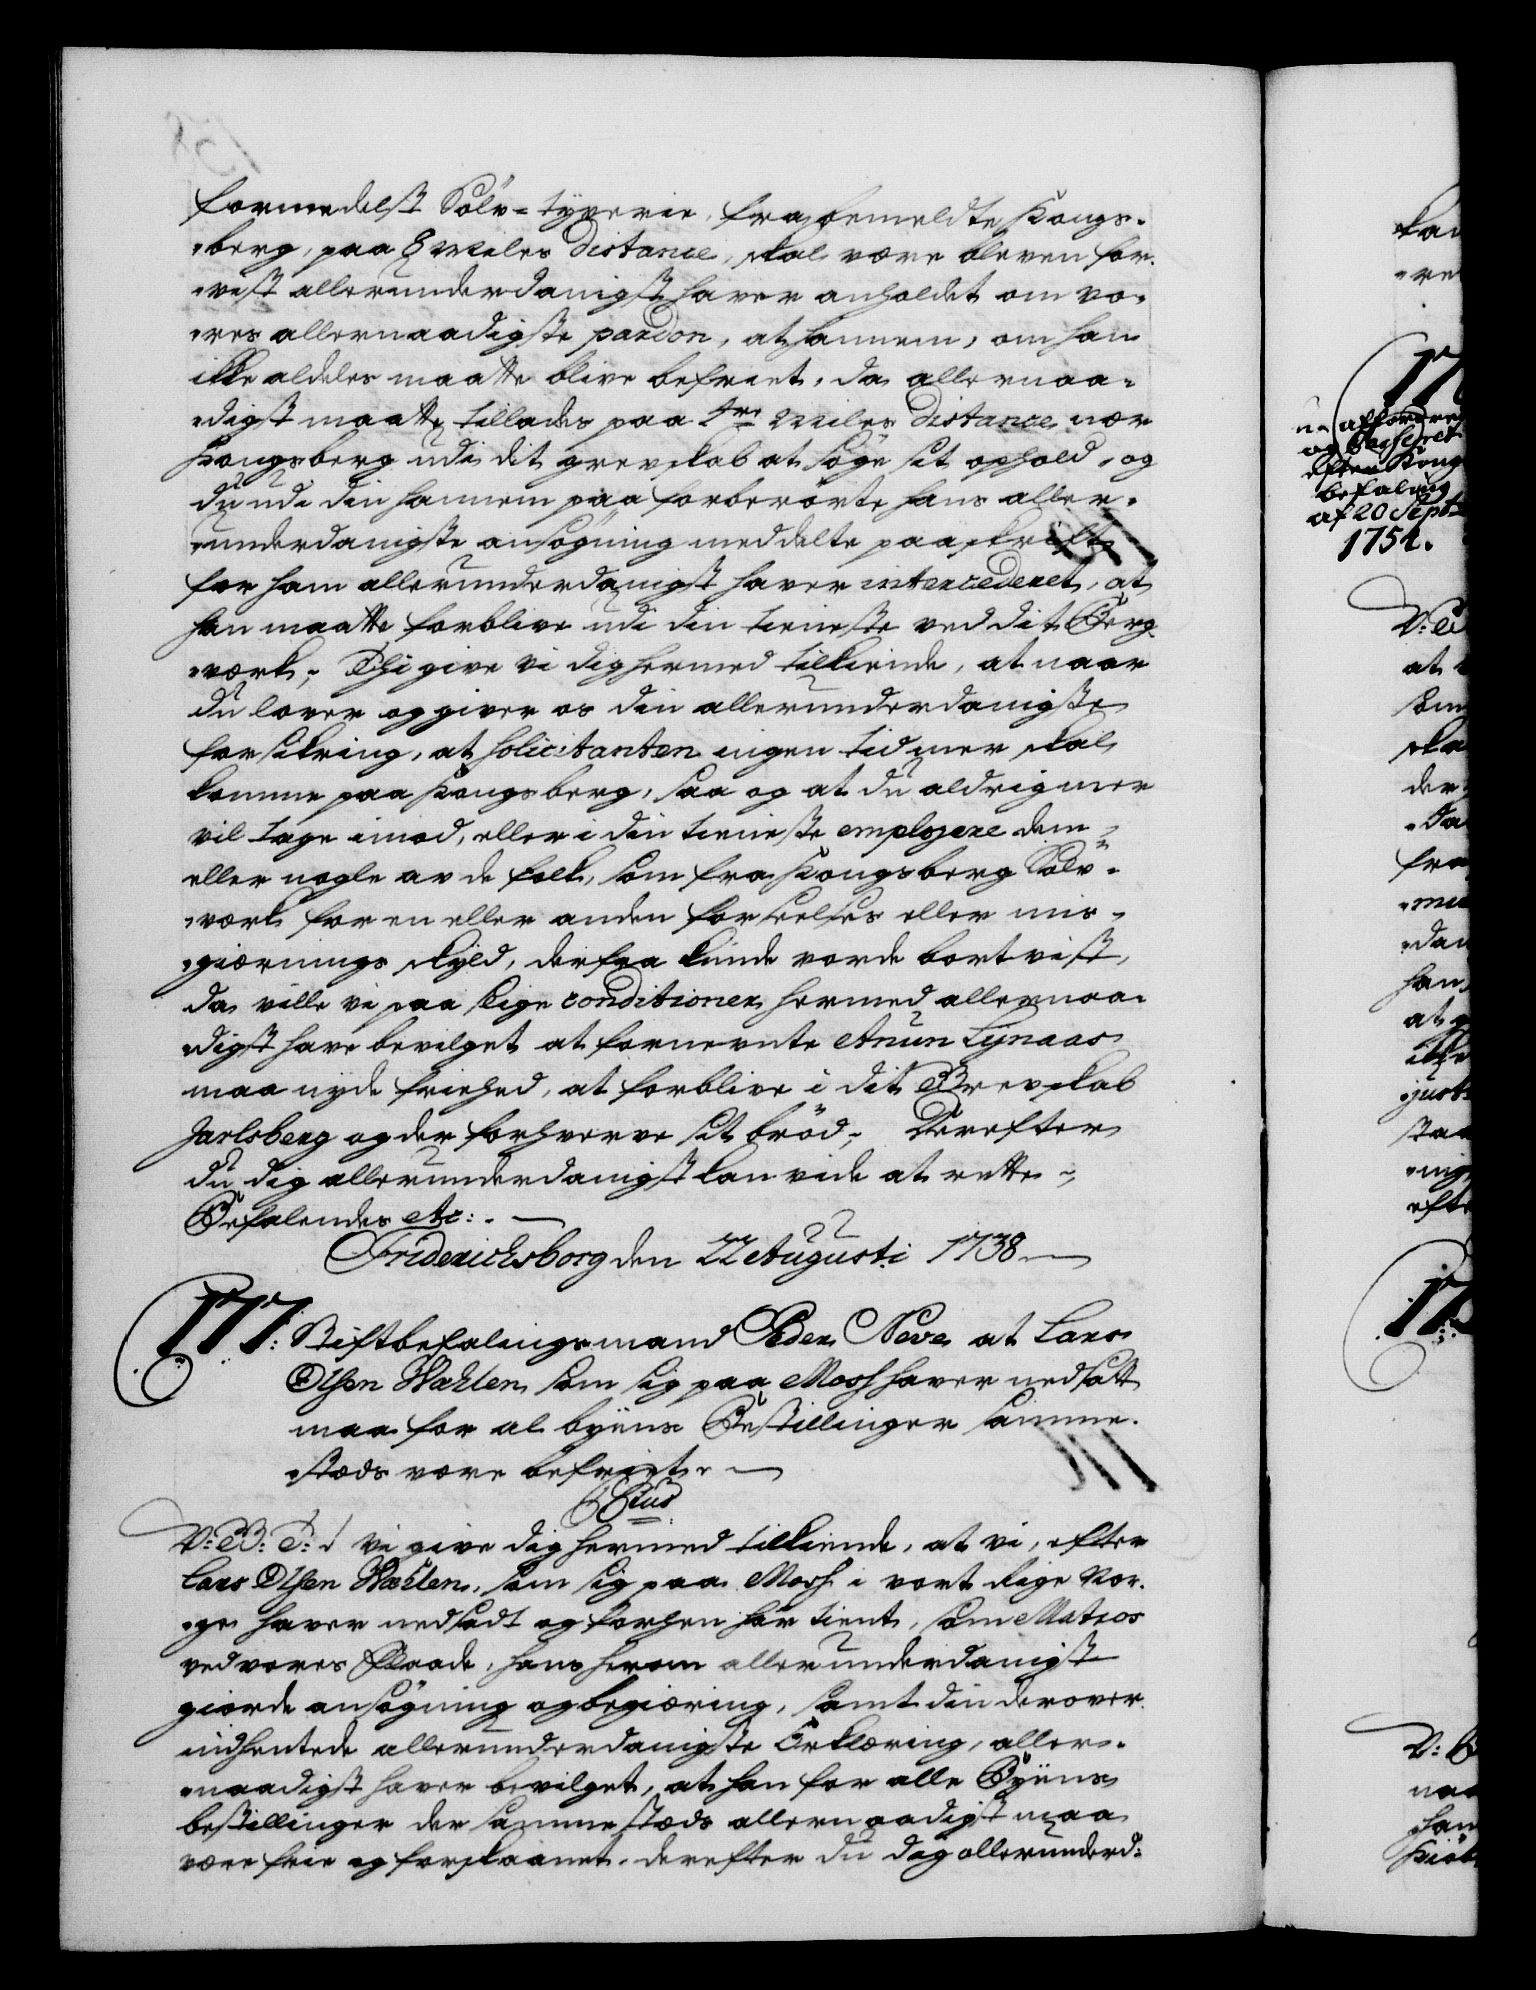 formedelst Sölv-tyverie, fra bemeldte Kongs-
berg, paa 8 Miles Distance, skal være bleven for-
vist allerunderdanigst haver anholdet om vo-
res allernaadigste pardon, at hannem, om han
ikke aldeles maatte blive befriet, da allernaa-
digst maatte tillades paa tre Miles Distance nær
Kongsberg udi dit grevskab at söge sit ophold, og
du udi din hannem paa forberörte hans aller-
underdanigste ansögning meddelte paaskrift
for ham allerunderdanigst haver intercederet, at
han maatte forblive udi din tieneste ved dit Berg-
værk; Thi give vi dig hermed tilkiende, at naar
du lover og giver os din allerunderdanigste
forsikring, at Solicitanten ingen tid mer skal
komme paa Kongsberg, saa og at du aldrig mer
vil tage imod, eller i din tieneste employere dem
eller nogle av de folk, som fra Kongsberg Sölv-
værk for en eller anden forseelses eller mis-
giernings skyld, derfra kunde vorde bortvist,
da ville vi paa slige conditioner hermed allernaa-
digst have bevilget at fornevnte Anun Lynaas
maa nyde friehed, at forblive i dit Grevskab
Jarlsberg og der forhverve sit bröd; Derefter
du dig allerunderdanigst kan vide at rette,
Befalendes etc:
Friderichsborg den 22 Augusti 1738
177: Stiftbefalingsmand Peder Neve at Lars
Olsen Wahlen som sig paa Moss haver nedsatt
maa for al byens Bestillinger samme-
stæds være befriet.
C6tus
V: G: T: / vi give dig hermed tilkiende, at vi, efter
Lars Olsen Wahlen, som sig paa Moss i vort Rige Nor-
ge haver nedsadt og forhen har tient, som Matros
ved vores Flaade, hans herom allerunderdanigst
giorde ansögning og begiæring, samt din derover
indhentede allerunderdanigste Erklæring, aller-
naadigst haver bevilget, at han for alle Byens
bestillinger der sammestæds allernaadigst maa
være frie og forskaanet. derefter du dig allerunderd:
u-affordret
og Casseret
efter Kong
befaling
af 20 Sept:
1754.